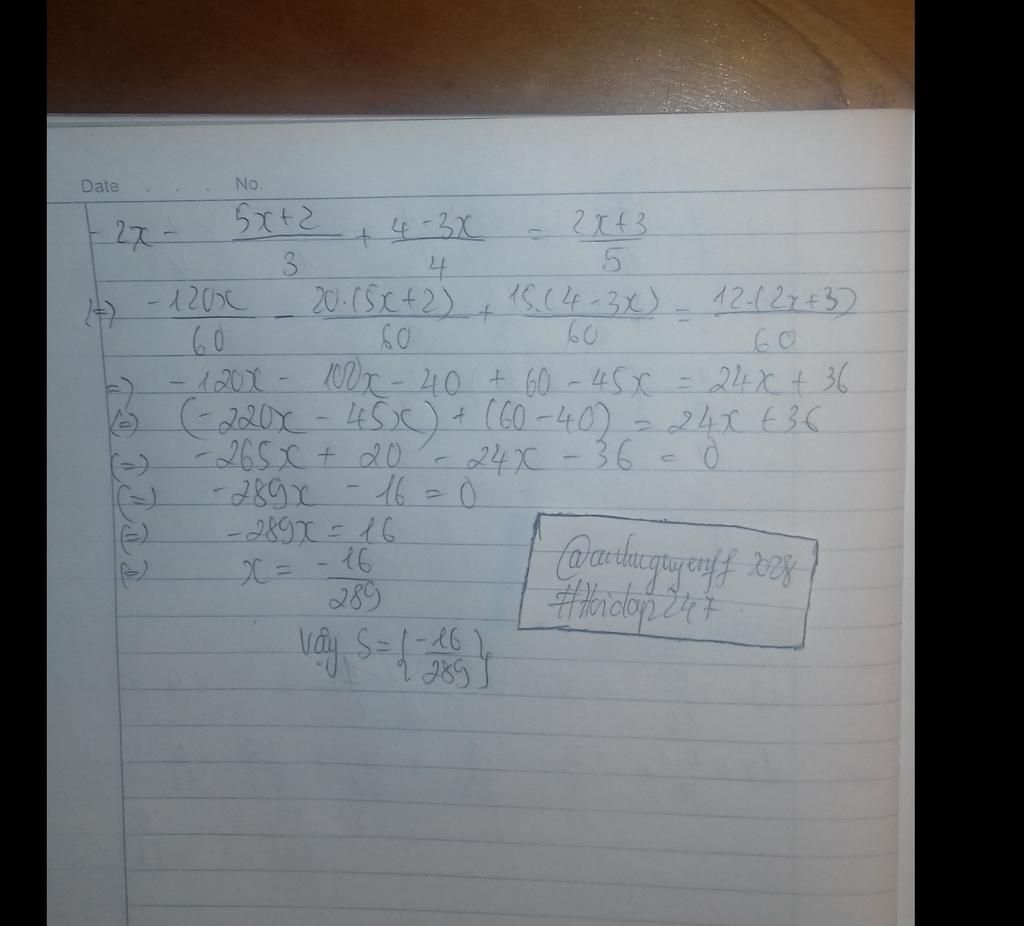 Date . . . No.
- 2x - \frac{5x+2}{3} + \frac{4-3x}{4} = \frac{2x+3}{5}
(=) \frac{-120x}{60} - \frac{20.(5x+2)}{60} + \frac{15.(4-3x)}{60} = \frac{12.(2x+3)}{60}
=) -120x - 100x - 40 + 60 - 45x = 24x + 36
(=) (-220x - 45x) + (60-40) = 24x + 36
(=) -265x + 20 - 24x - 36 = 0
(=) -289x - 16 = 0
(=) -289x = 16
(=) x = \frac{-16}{289}
Vậy S = {\frac{-16}{289}}
2028
#Hoidap247